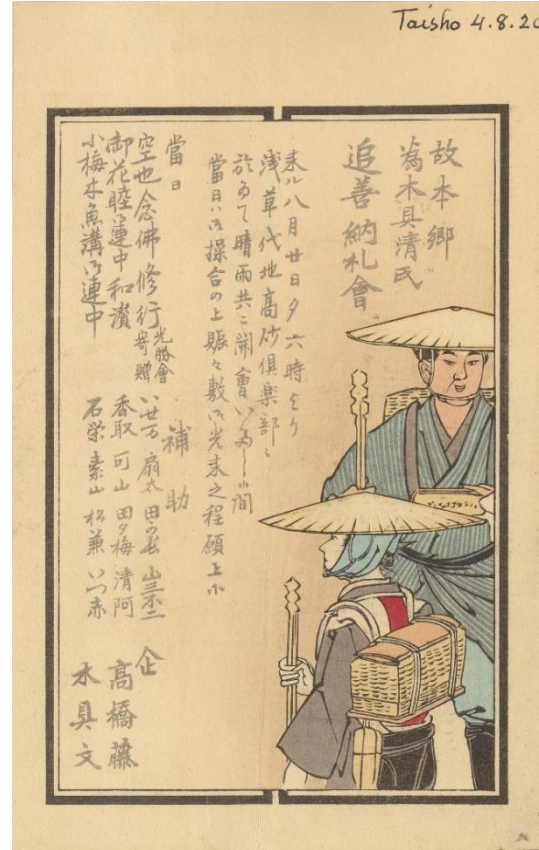 Taisho 4.8.20
故本郷
為木具清氏
追善納札會
来ル八月廿日夕六時より
浅草代地高砂倶楽部ニ
於ゐて晴雨共ニ開會いたし候間
當日ハ御操合の上賑々敷御光来之程願上候
當日
空也念佛修行 光勝會寄贈
御花睦御連中和讃
小梅木魚講御連中
補助
いせ万 扇太 田の長
香取 可山 田夕梅 清阿
石栄 素山 松兼 いつ赤
企
高橋藤
木具文